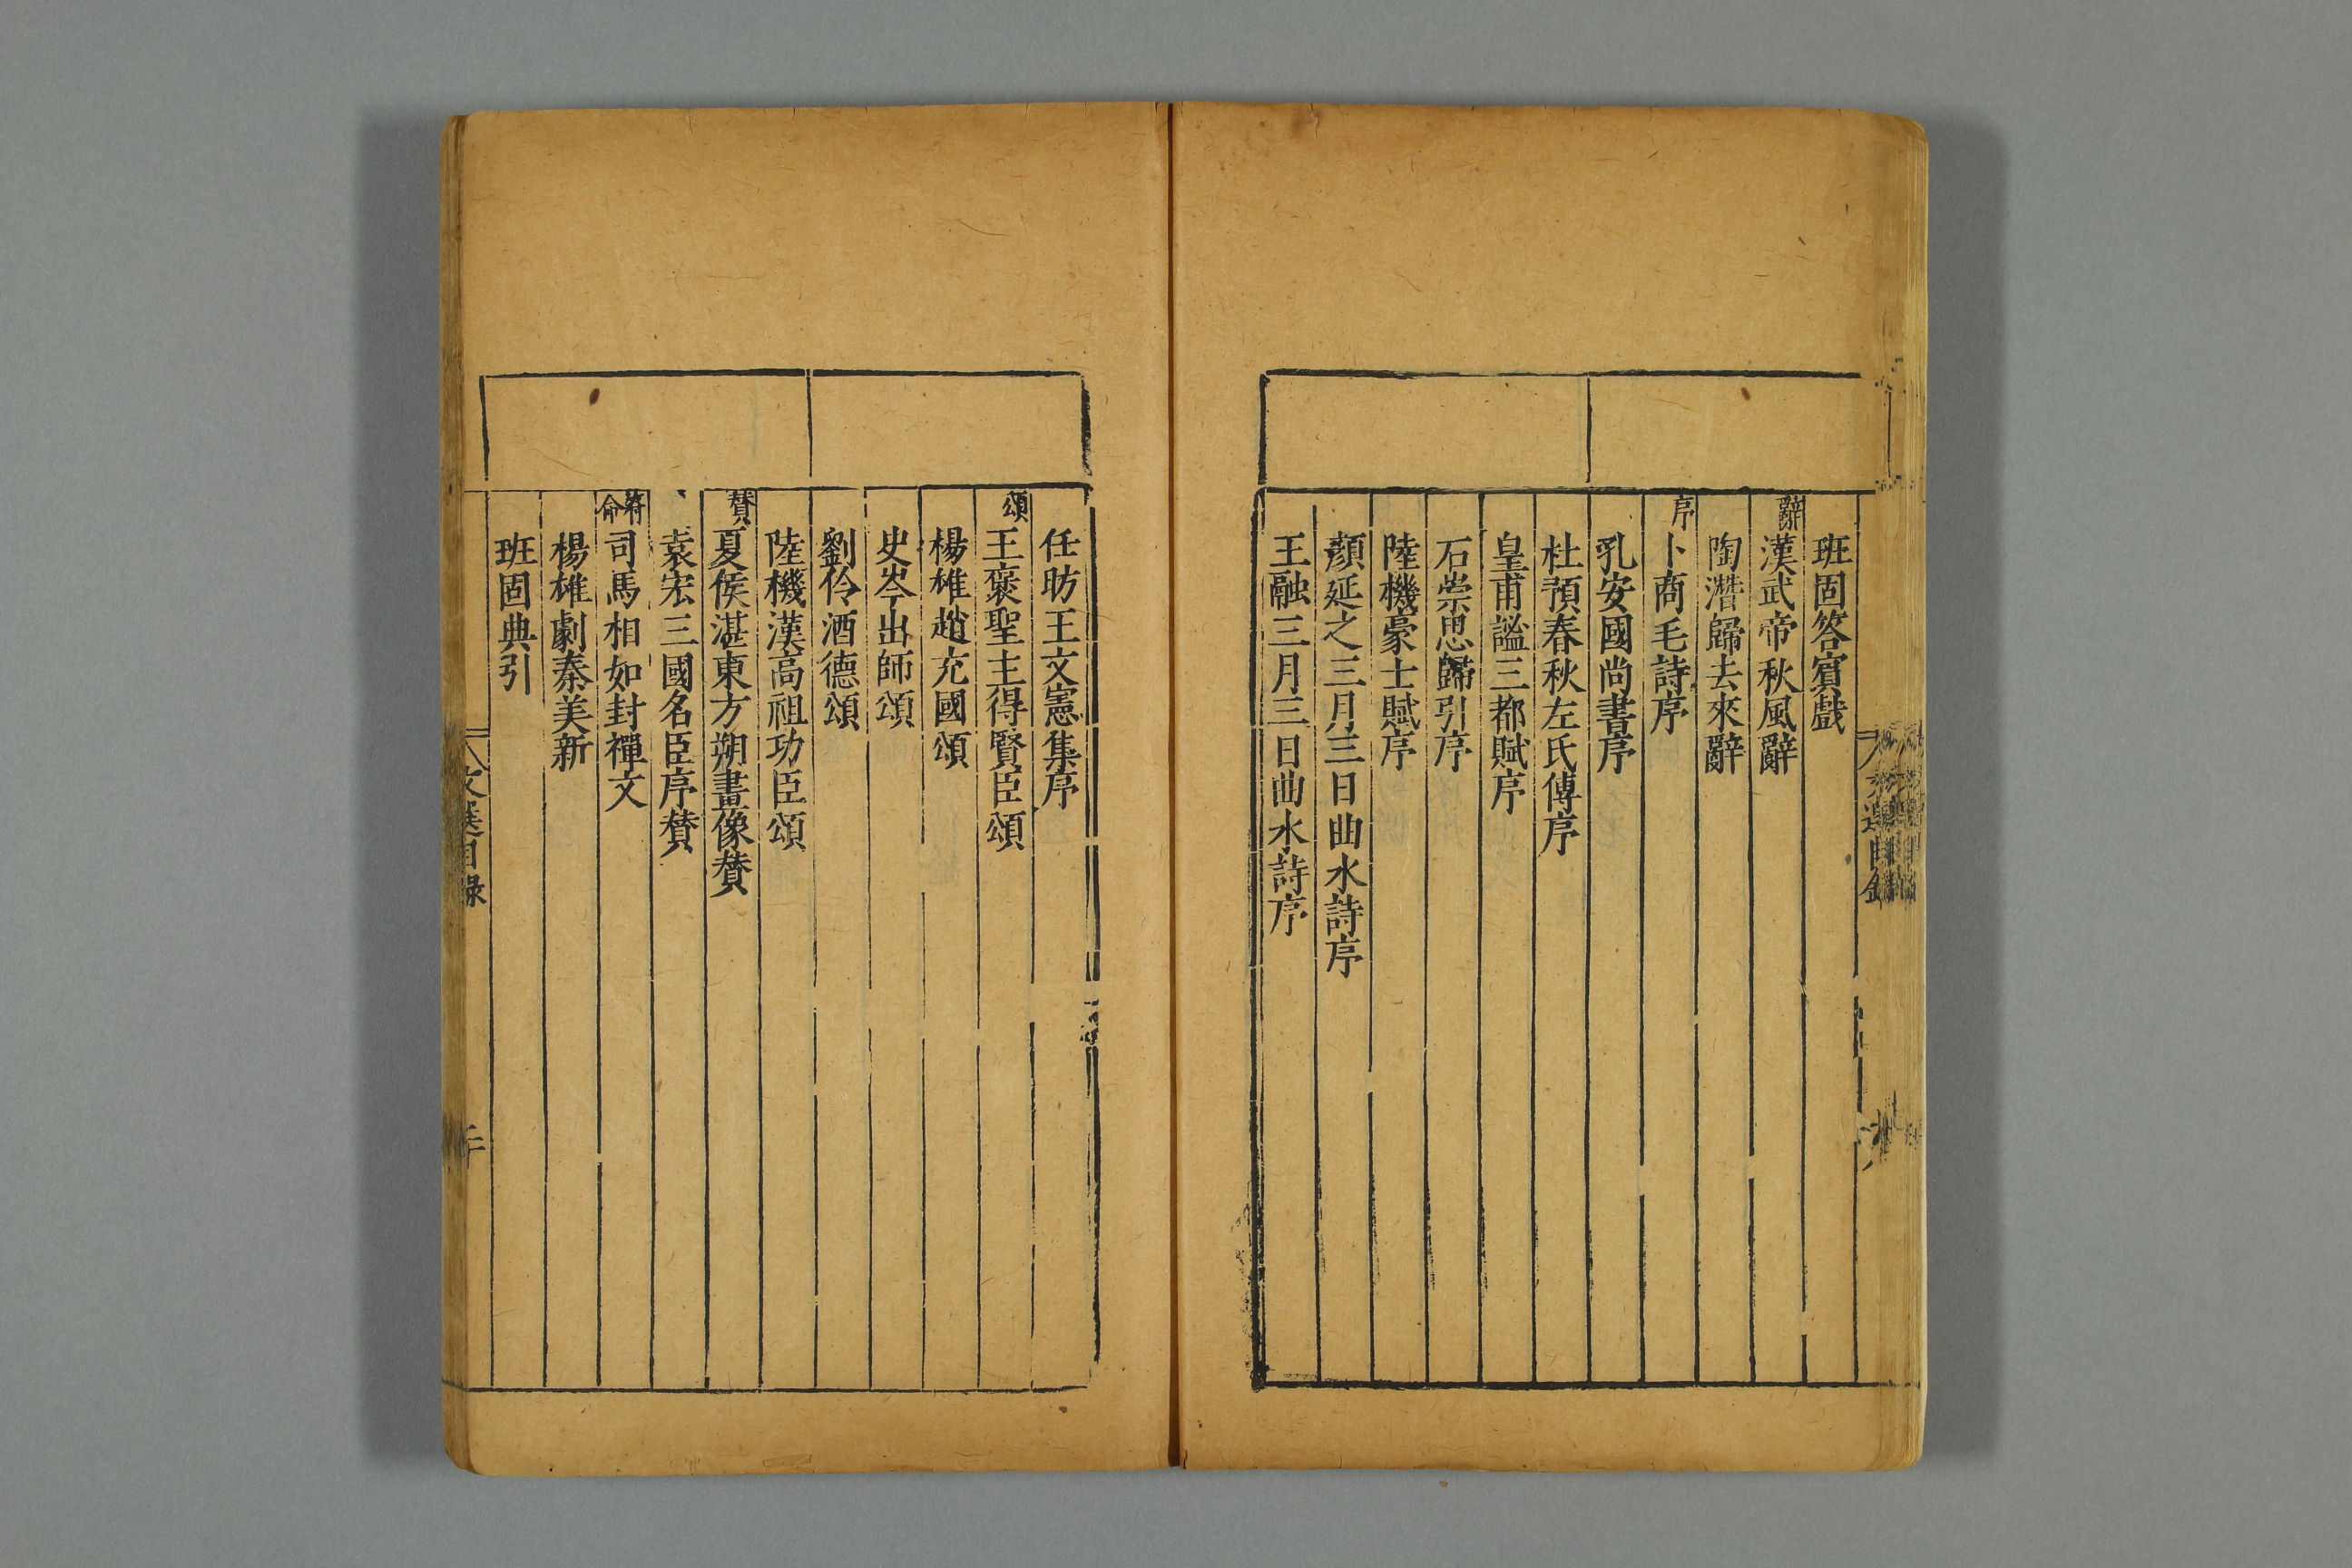 班固答賓戲
辭 漢武帝秋風辭
陶潛歸去來辭
序 卜商毛詩序
孔安國尚書序
杜預春秋左氏傳序
皇甫謐三都賦序
石崇思歸引序
陸機豪士賦序
顏延之三月三日曲水詩序
王融三月三日曲水詩序
任昉王文憲集序
頌 王褒聖主得賢臣頌
楊雄趙充國頌
史岑出師頌
劉伶酒德頌
陸機漢高祖功臣頌
賛 夏侯湛東方朔畫像賛
袁宏三國名臣序賛
符命 司馬相如封禪文
楊雄劇秦美新
班固典引
文選目錄